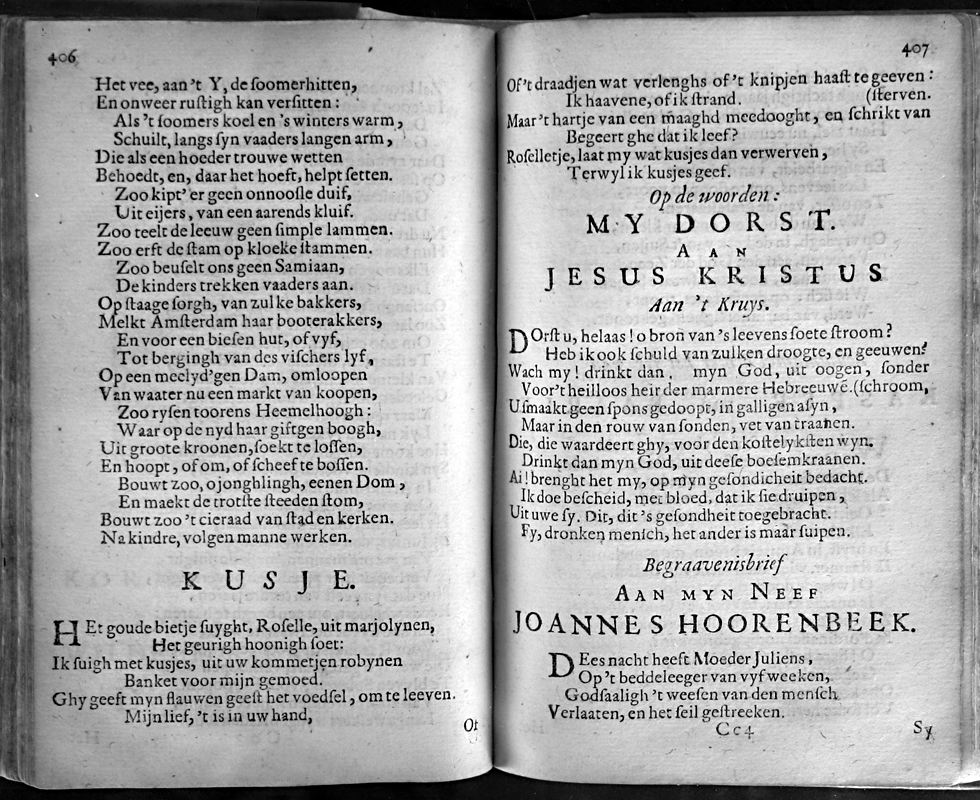 406
Het vee, aan 't Y, de ſoomerhitten,
En onweer ruſtigh kan verſitten :
Als 't ſoomers koel en 's winters warm,
Schuilt, langs ſyn vaaders langen arm,
Die als een hoeder trouwe wetten
Behoedt, en, daar het hoeft, helpt ſetten.
Zoo kipt' er geen onnooſle duif,
Uit eijers, van een aarends kluif.
Zoo teelt de leeuw geen ſimple lammen.
Zoo erft de ſtam op kloeke ſtammen.
Zoo beuſelt ons geen Samiaan,
De kinders trekken vaaders aan.
Op ſtaage ſorgh, van zulke bakkers,
Melkt Amſterdam haar booterakkers,
En voor een bieſen hut, of vyf,
Tot bergingh van des viſchers lyf,
Op een meelyd'gen Dam, omloopen
Van waater nu een markt van koopen,
Zoo ryſen toorens Heemelhoogh :
Waar op de nyd haar giftgen boogh,
Uit groote kroonen, ſoekt te loſſen,
En hoopt, of om, of ſcheef te boſſen.
Bouwt zoo, o jonghlingh, eenen Dom,
En maekt de trotſte ſteeden ſtom,
Bouwt zoo 't cieraad van ſtad en kerken.
Na kindre, volgen manne werken.
KUSJE.
HEt goude bietje ſuyght, Roſelle, uit marjolynen,
Het geurigh hoonigh ſoet:
Ik ſuigh met kusjes, uit uw kommetjen robynen
Banket voor mijn gemoed.
Ghy geeft myn flauwen geeſt het voedſel, om te leeven.
Mijn lief, 't is in uw hand,
Of
407
Of 't draadjen wat verlenghs of 't knipjen haaſt te geeven :
Ik haavene, of ik ſtrand. (ſterven.
Maar 't hartje van een maaghd meedooght, en ſchrikt van
Begeert ghe dat ik leef?
Roſelletje, laat my wat kusjes dan verwerven,
Terwyl ik kusjes geef.
Op de woorden :
MY DORST.
AAN
JESUS KRISTUS
Aan 't Kruys.
DOrſt u, helaas! o bron van 's leevens ſoete ſtroom?
Heb ik ook ſchuld van zulken droogte, en geeuwen?
Wach my! drinkt dan, myn God, uit oogen, ſonder
Voor't heilloos heir der marmere Hebreeuwē.(ſchroom,
U ſmaakt geen ſpons gedoopt, in galligen aſyn,
Maar in den rouw van ſonden, vet van traanen.
Die, die waardeert ghy, voor den koſtelykſten wyn.
Drinkt dan myn God, uit deeſe boeſemkraanen.
Ai! brenght het my, op myn geſondicheit bedacht.
Ik doe beſcheid, met bloed, dat ik ſie druipen,
Uit uwe ſy. Dit, dit 's geſondheit toegebracht.
Fy, dronken menſch, het ander is maar ſuipen.
Begraavenisbrief
AAN MYN NEEF
JOANNES HOORENBEEK.
DEes nacht heeft Moeder Juliens,
Op 't beddeleeger van vyf weeken,
Godſaaligh 't weeſen van den menſch
Verlaaten, en het ſeil geſtreeken.
Cc4
Sy